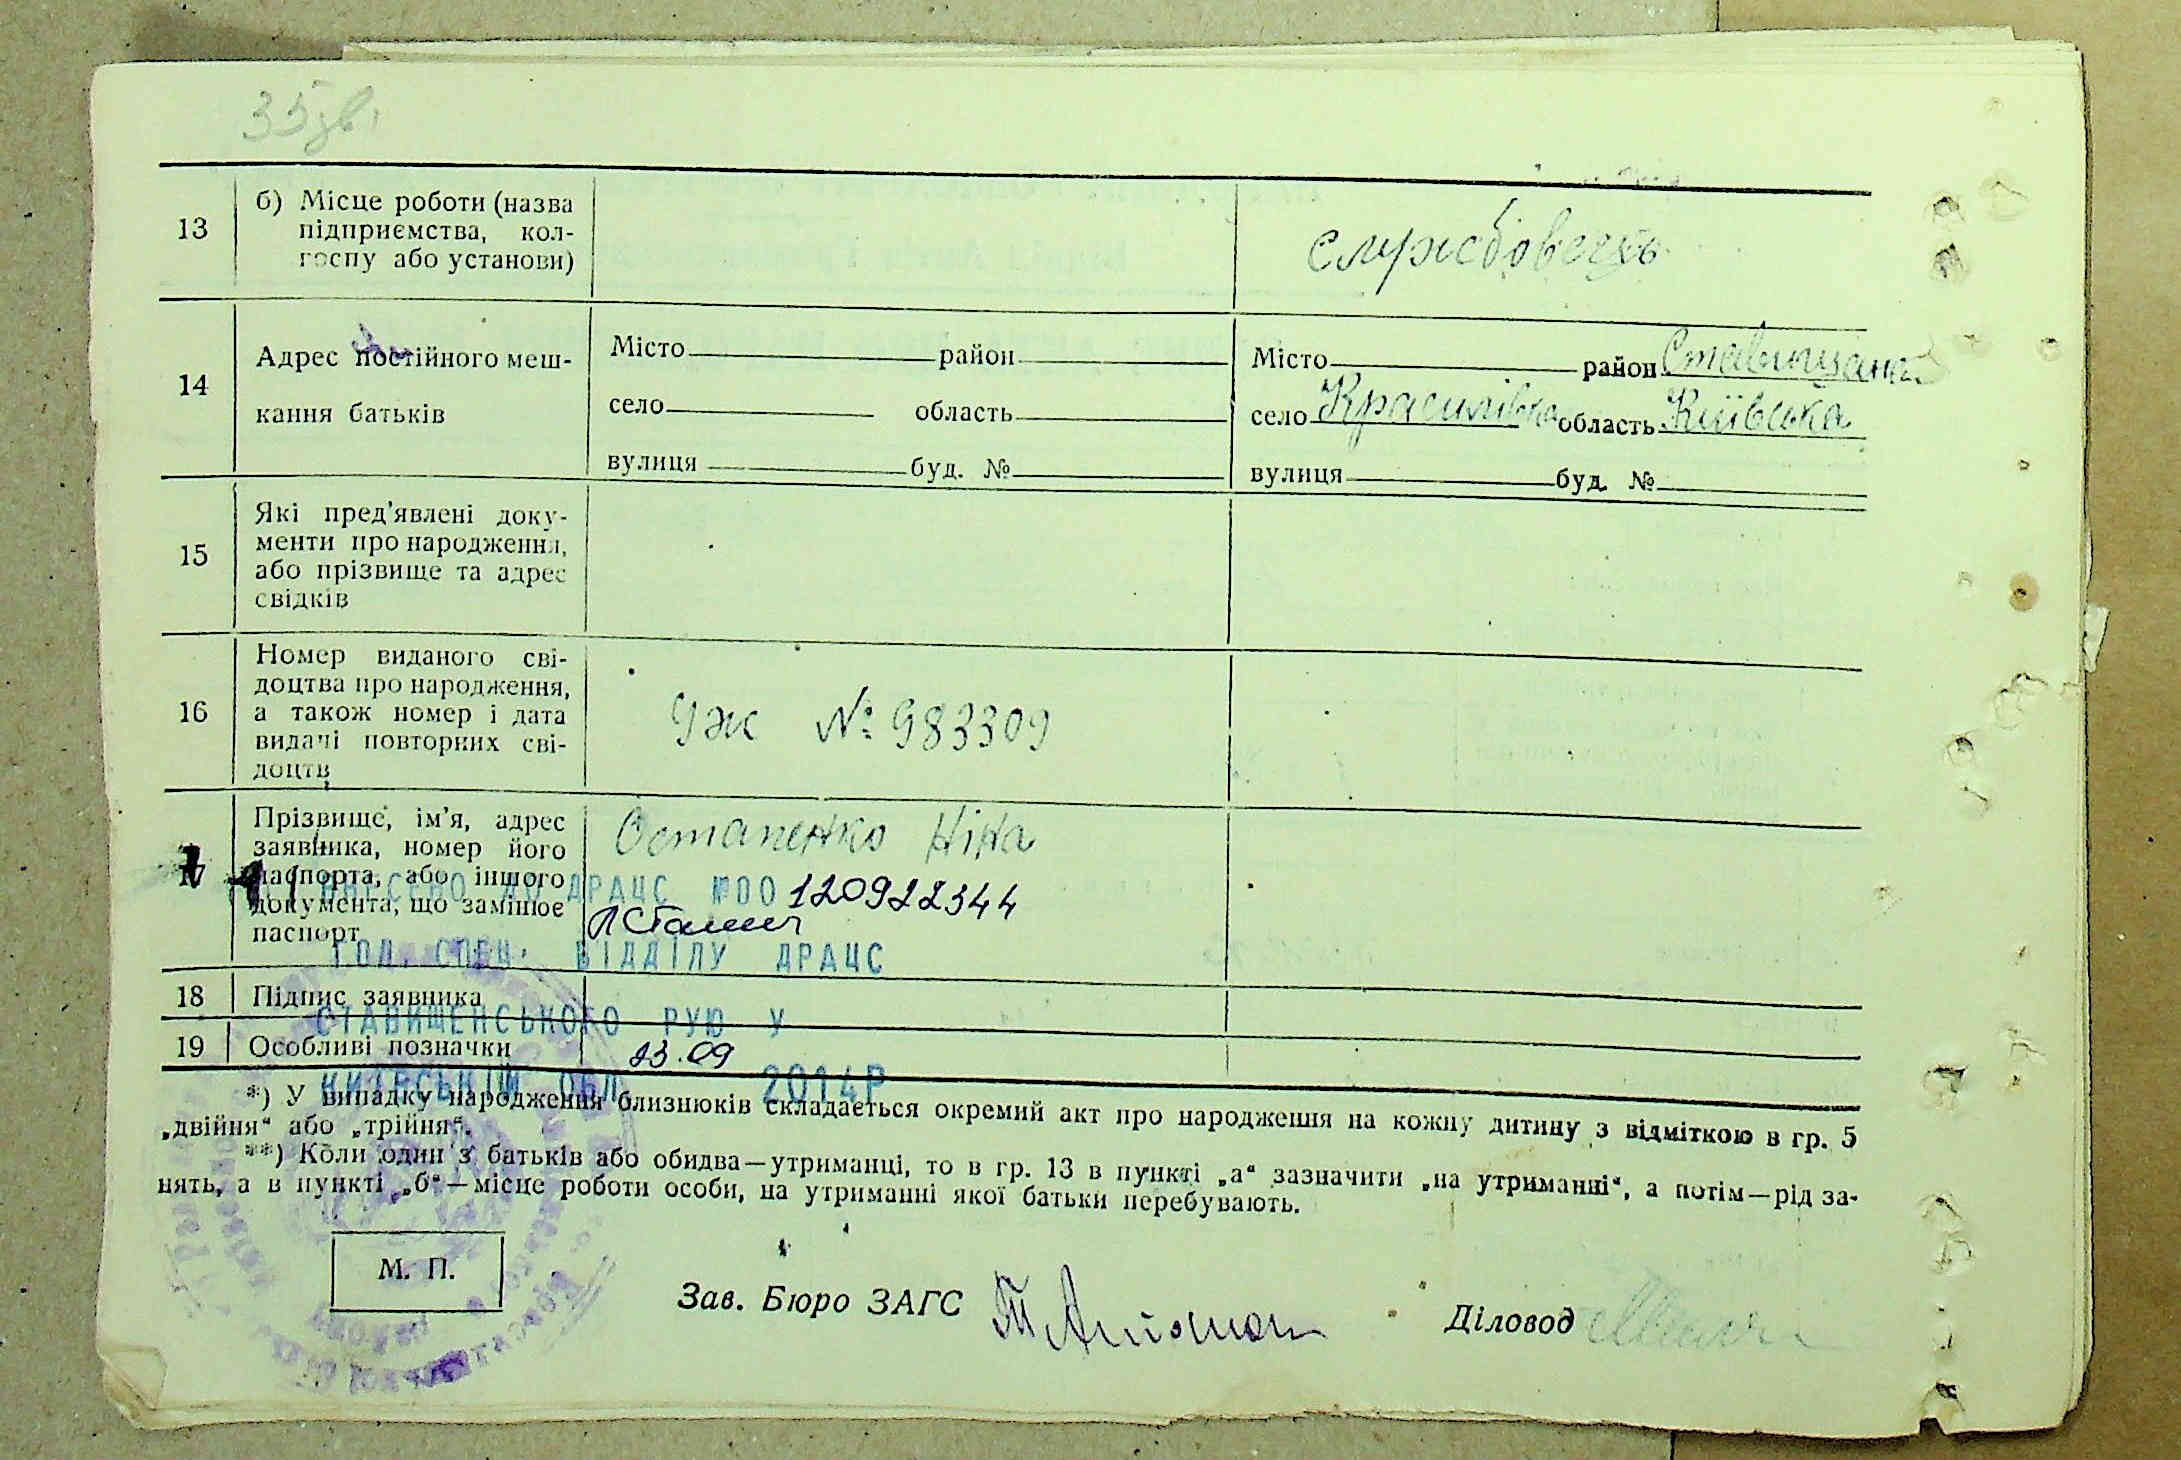 35зв.
13
б) Місце роботи (назва
підприємства, кол-
госпу або установи)
службовець
14
Адрес постійного меш-
кання батьків
Місто район
село область
вулиця буд. №
Місто район Ставищанс.
село Красилівка область Київська
вулиця буд. №
15
Які пред'явлені доку-
менти про народження,
або прізвище та адрес
свідків
16
Номер виданого сві-
доцтва про народження,
а також номер і дата
видачі повторних сві-
доцтв
УЖ № 983309
17
Прізвище, ім'я, адрес
заявника, номер його
паспорта, або іншого
документа, що замінює
паспорт
Остапенко Ніна
ВНЕСЕНО ДО ДРАЦС №00120922344
ГОЛ. СПЕЦ. ВІДДІЛУ ДРАЦС
18 Підпис заявника
СТАВИЩЕНСЬКОГО РУЮ У
19 Особливі позначки
23.09
КИЇВСЬКІЙ ОБЛ. 2014Р
*) У випадку народження близнюків складається окремий акт про народження на кожну дитину з відміткою в гр. 5
„двійня“ або „трійня“.
**) Коли один з батьків або обидва—утриманці, то в гр. 13 в пункті „а“ зазначити „на утриманні“, а потім—рід за-
нять, а в пункті „б“—місце роботи особи, на утриманні якої батьки перебувають.
М. П.
Зав. Бюро ЗАГС
Діловод